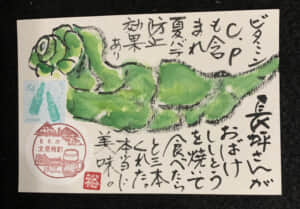 ビタミン
C,P
も含
まれ
夏バテ
防止
効果
あり
長坪さんが
おばけ
ししとう
を焼いて
食べたら
と三本
くれた。
本当に
美味。